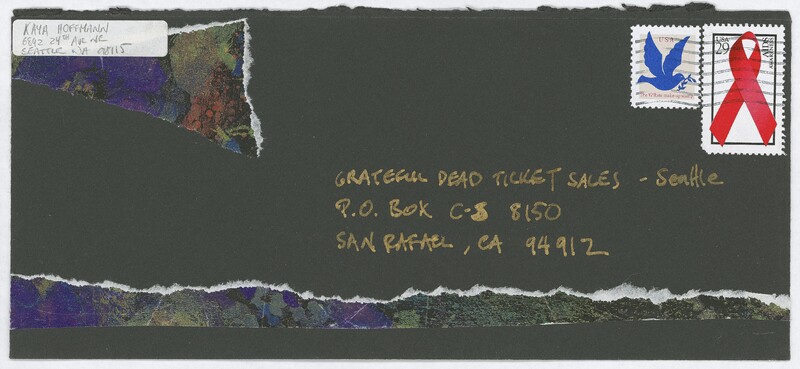 KAYA HOFFMANN
6842 24TH AVE NE
SEATTLE WA 98115
USA
USA
29
AIDS
AWARENESS
GRATEFUL DEAD TICKET SALES - Seattle
P.O. BOX C-S 8150
SAN RAFAEL, CA 94912